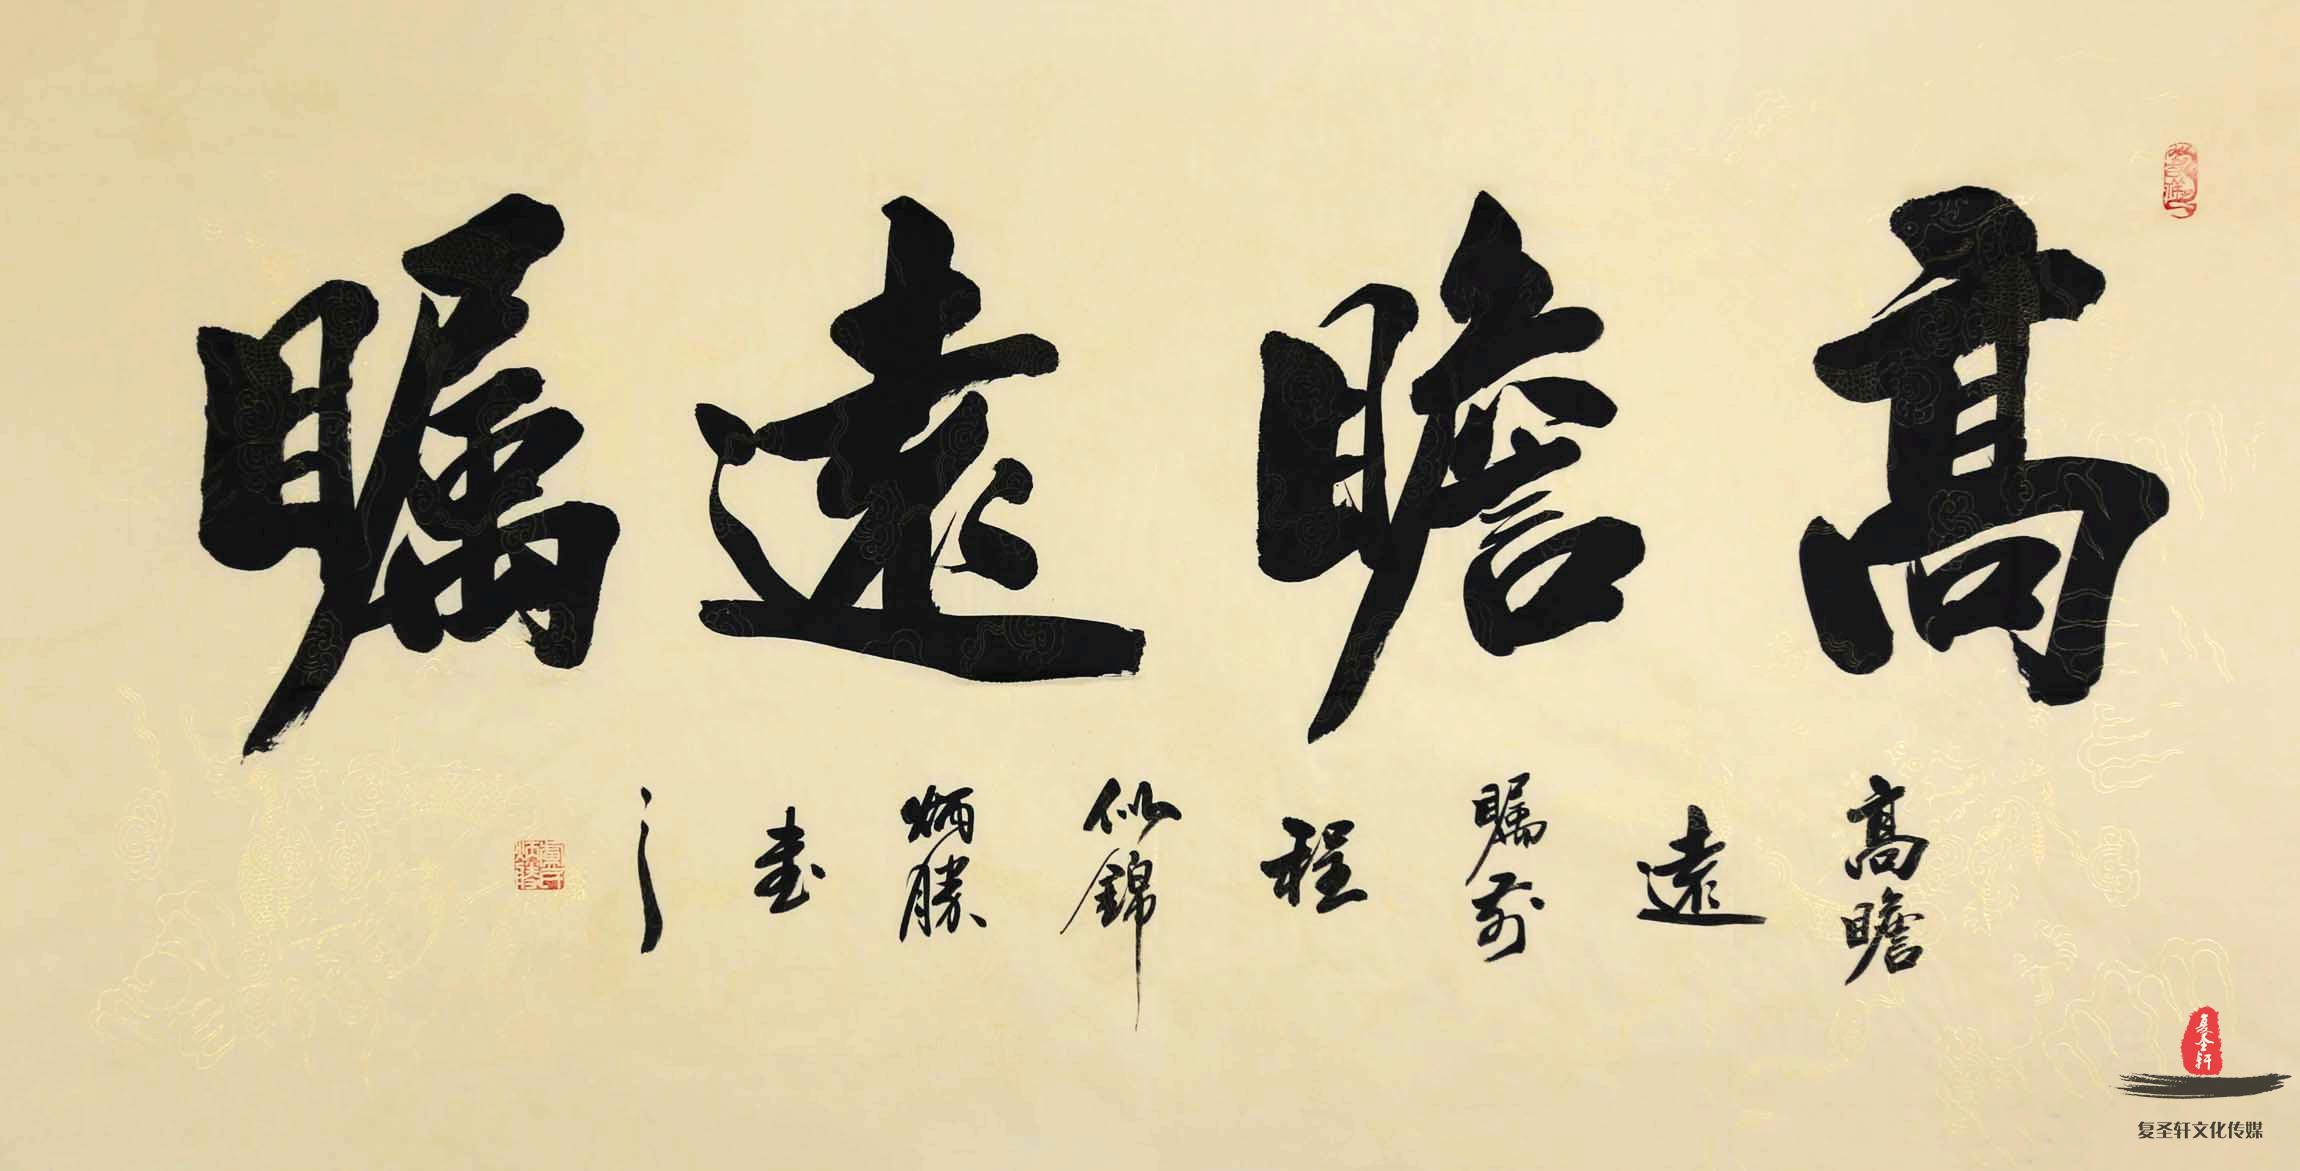 高瞻遠瞩
高瞻
遠
瞩前
程
似錦
炳勝
书
复圣轩
复圣轩文化传媒